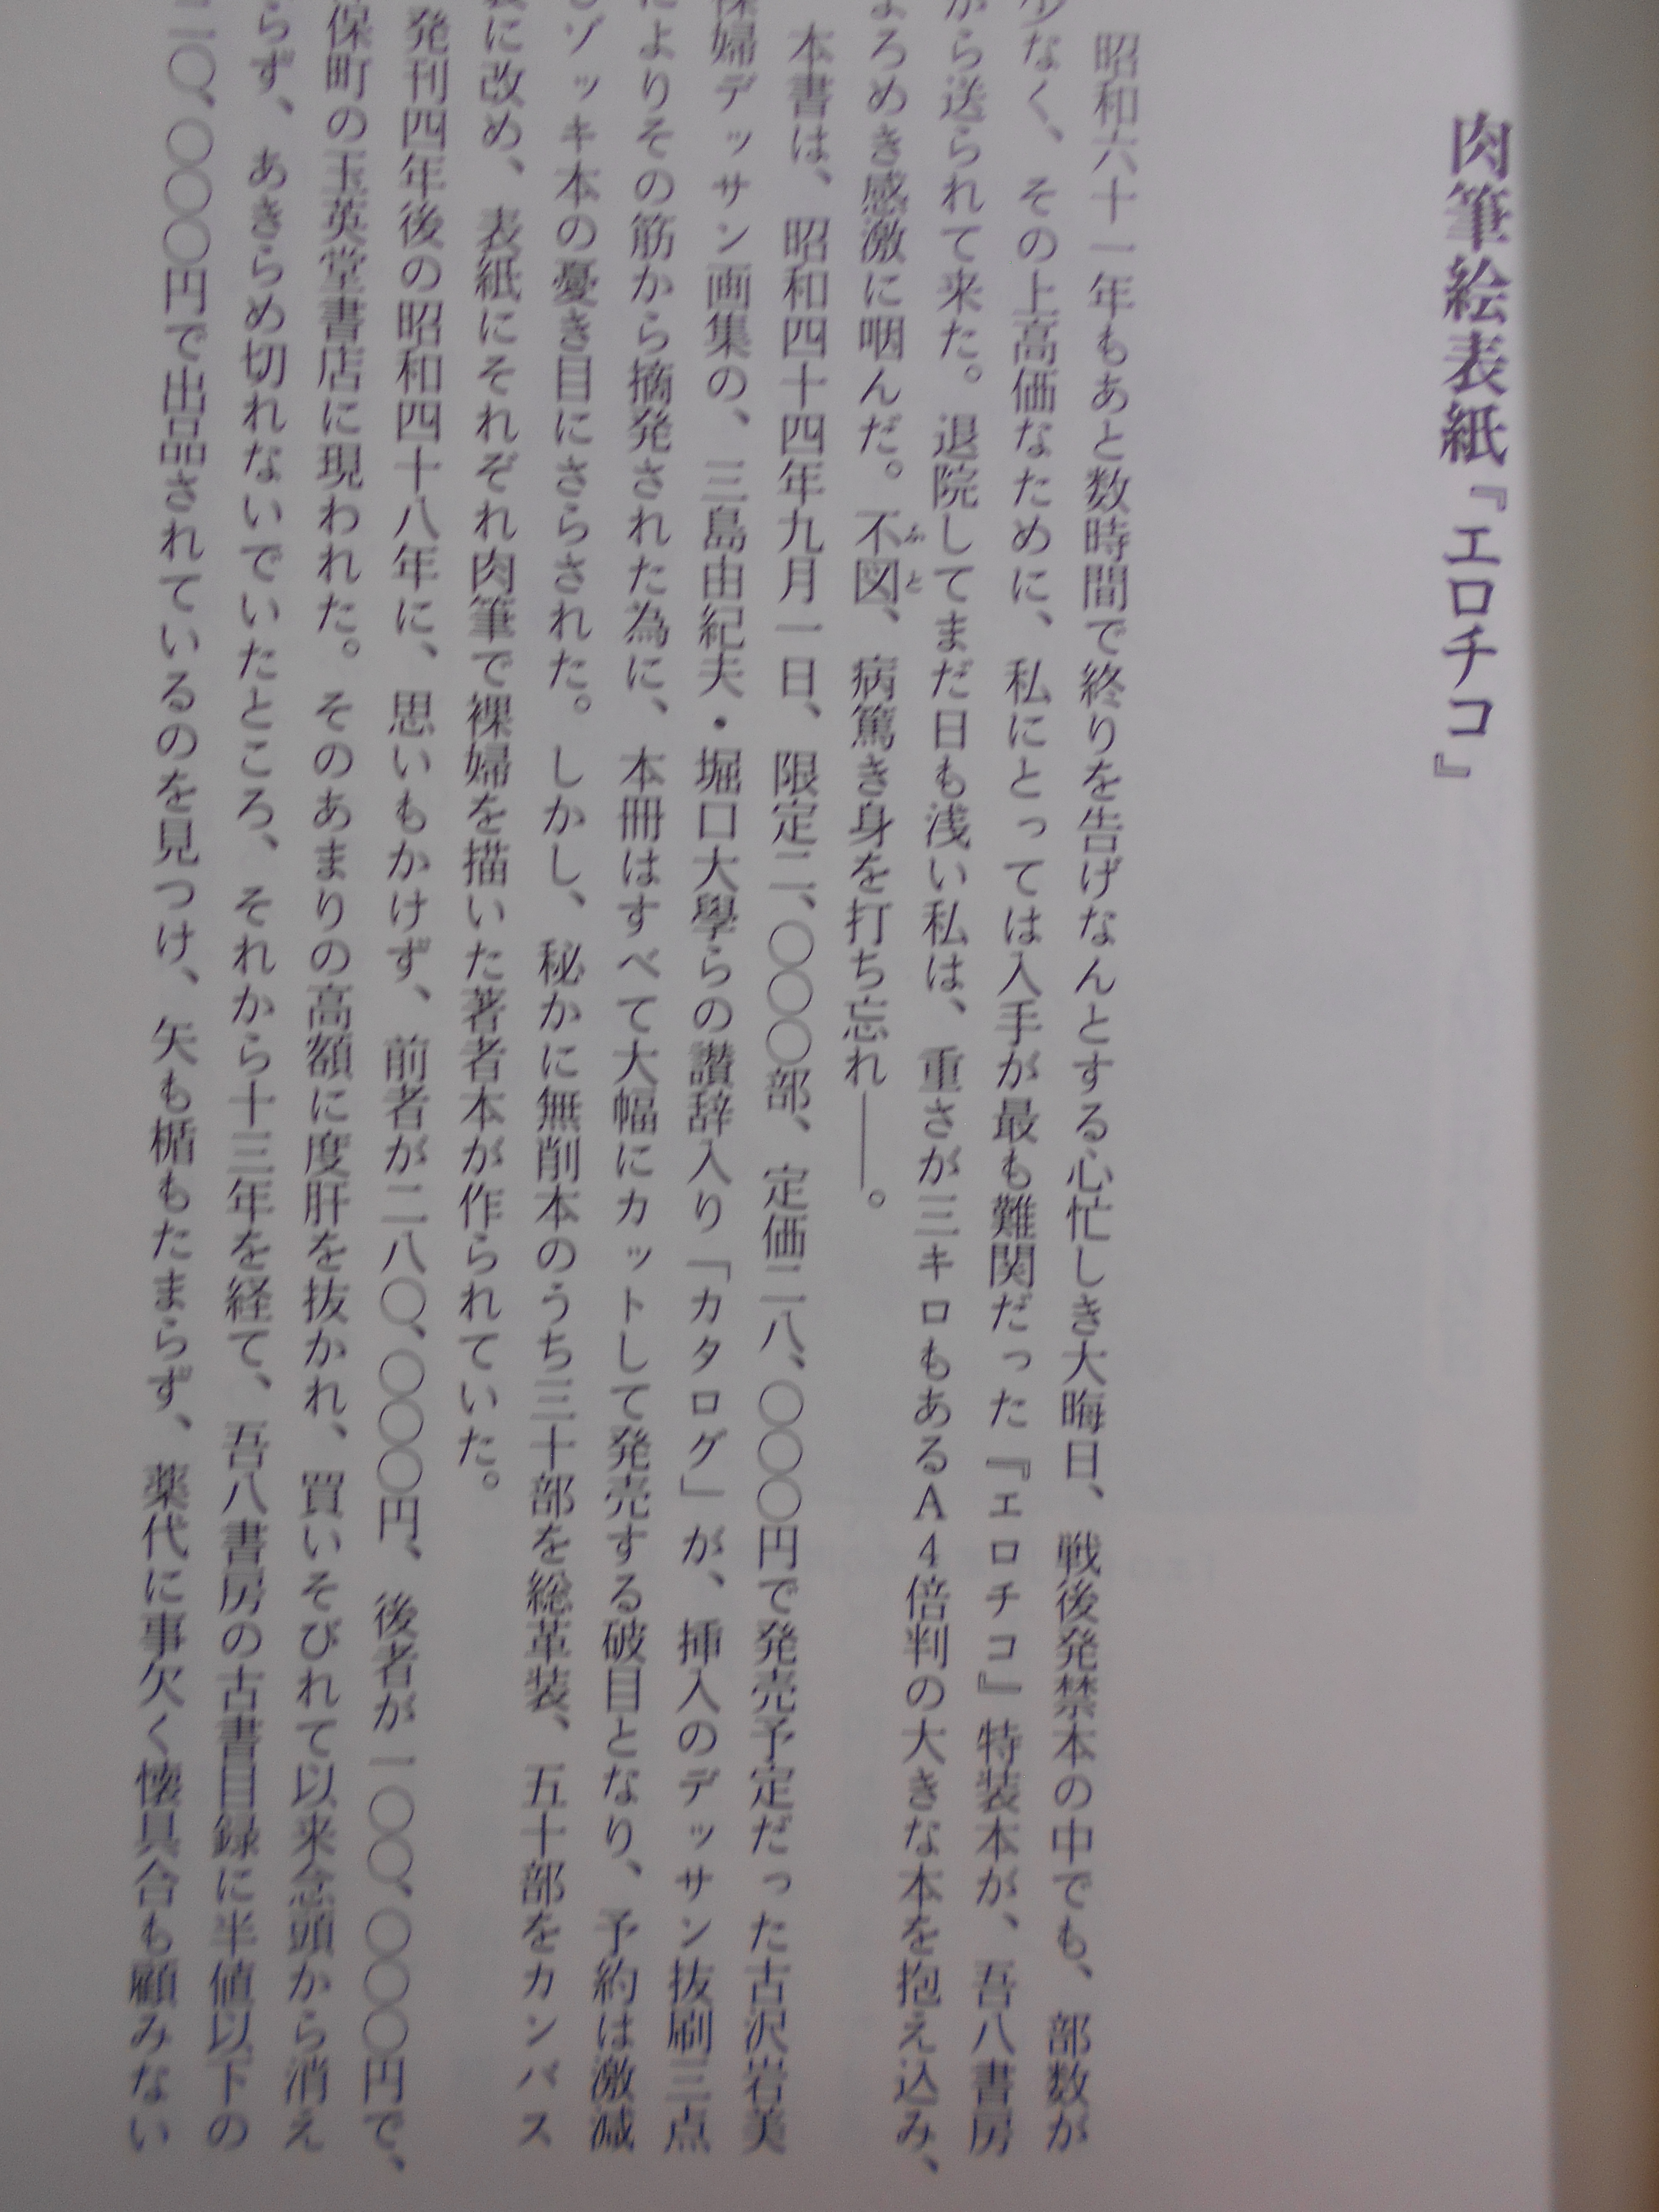 肉筆絵表紙『エロチコ』
昭和六十一年もあと数時間で終りを告げなんとする心忙しき大晦日、戦後発禁本の中でも、部数が
少なく、その上高価なために、私にとっては入手が最も難関だった『エロチコ』特装本が、吾八書房
から送られて来た。退院してまだ日も浅い私は、重さが三キロもあるA4倍判の大きな本を抱え込み、
よろめき感激に咽んだ。不図、病篤き身を打ち忘れ――。
本書は、昭和四十四年九月一日、限定二、〇〇〇部、定価二八、〇〇〇円で発売予定だった古沢岩美
裸婦デッサン画集の、三島由紀夫・堀口大學らの讃辞入り「カタログ」が、挿入のデッサン抜刷三点
によりその筋から摘発された為に、本冊はすべて大幅にカットして発売する破目となり、予約は激減
ゾッキ本の憂き目にさらされた。しかし、秘かに無削本のうち三十部を総革装、五十部をカンバス
に改め、表紙にそれぞれ肉筆で裸婦を描いた著者本が作られていた。
発刊四年後の昭和四十八年に、思いもかけず、前者が二八〇、〇〇〇円、後者が一〇〇、〇〇〇円で、
保町の玉英堂書店に現われた。そのあまりの高額に度肝を抜かれ、買いそびれて以来念頭から消え
らず、あきらめ切れないでいたところ、それから十三年を経て、吾八書房の古書目録に半値以下の
二〇、〇〇〇円で出品されているのを見つけ、矢も楯もたまらず、薬代に事欠く懐具合も顧みない